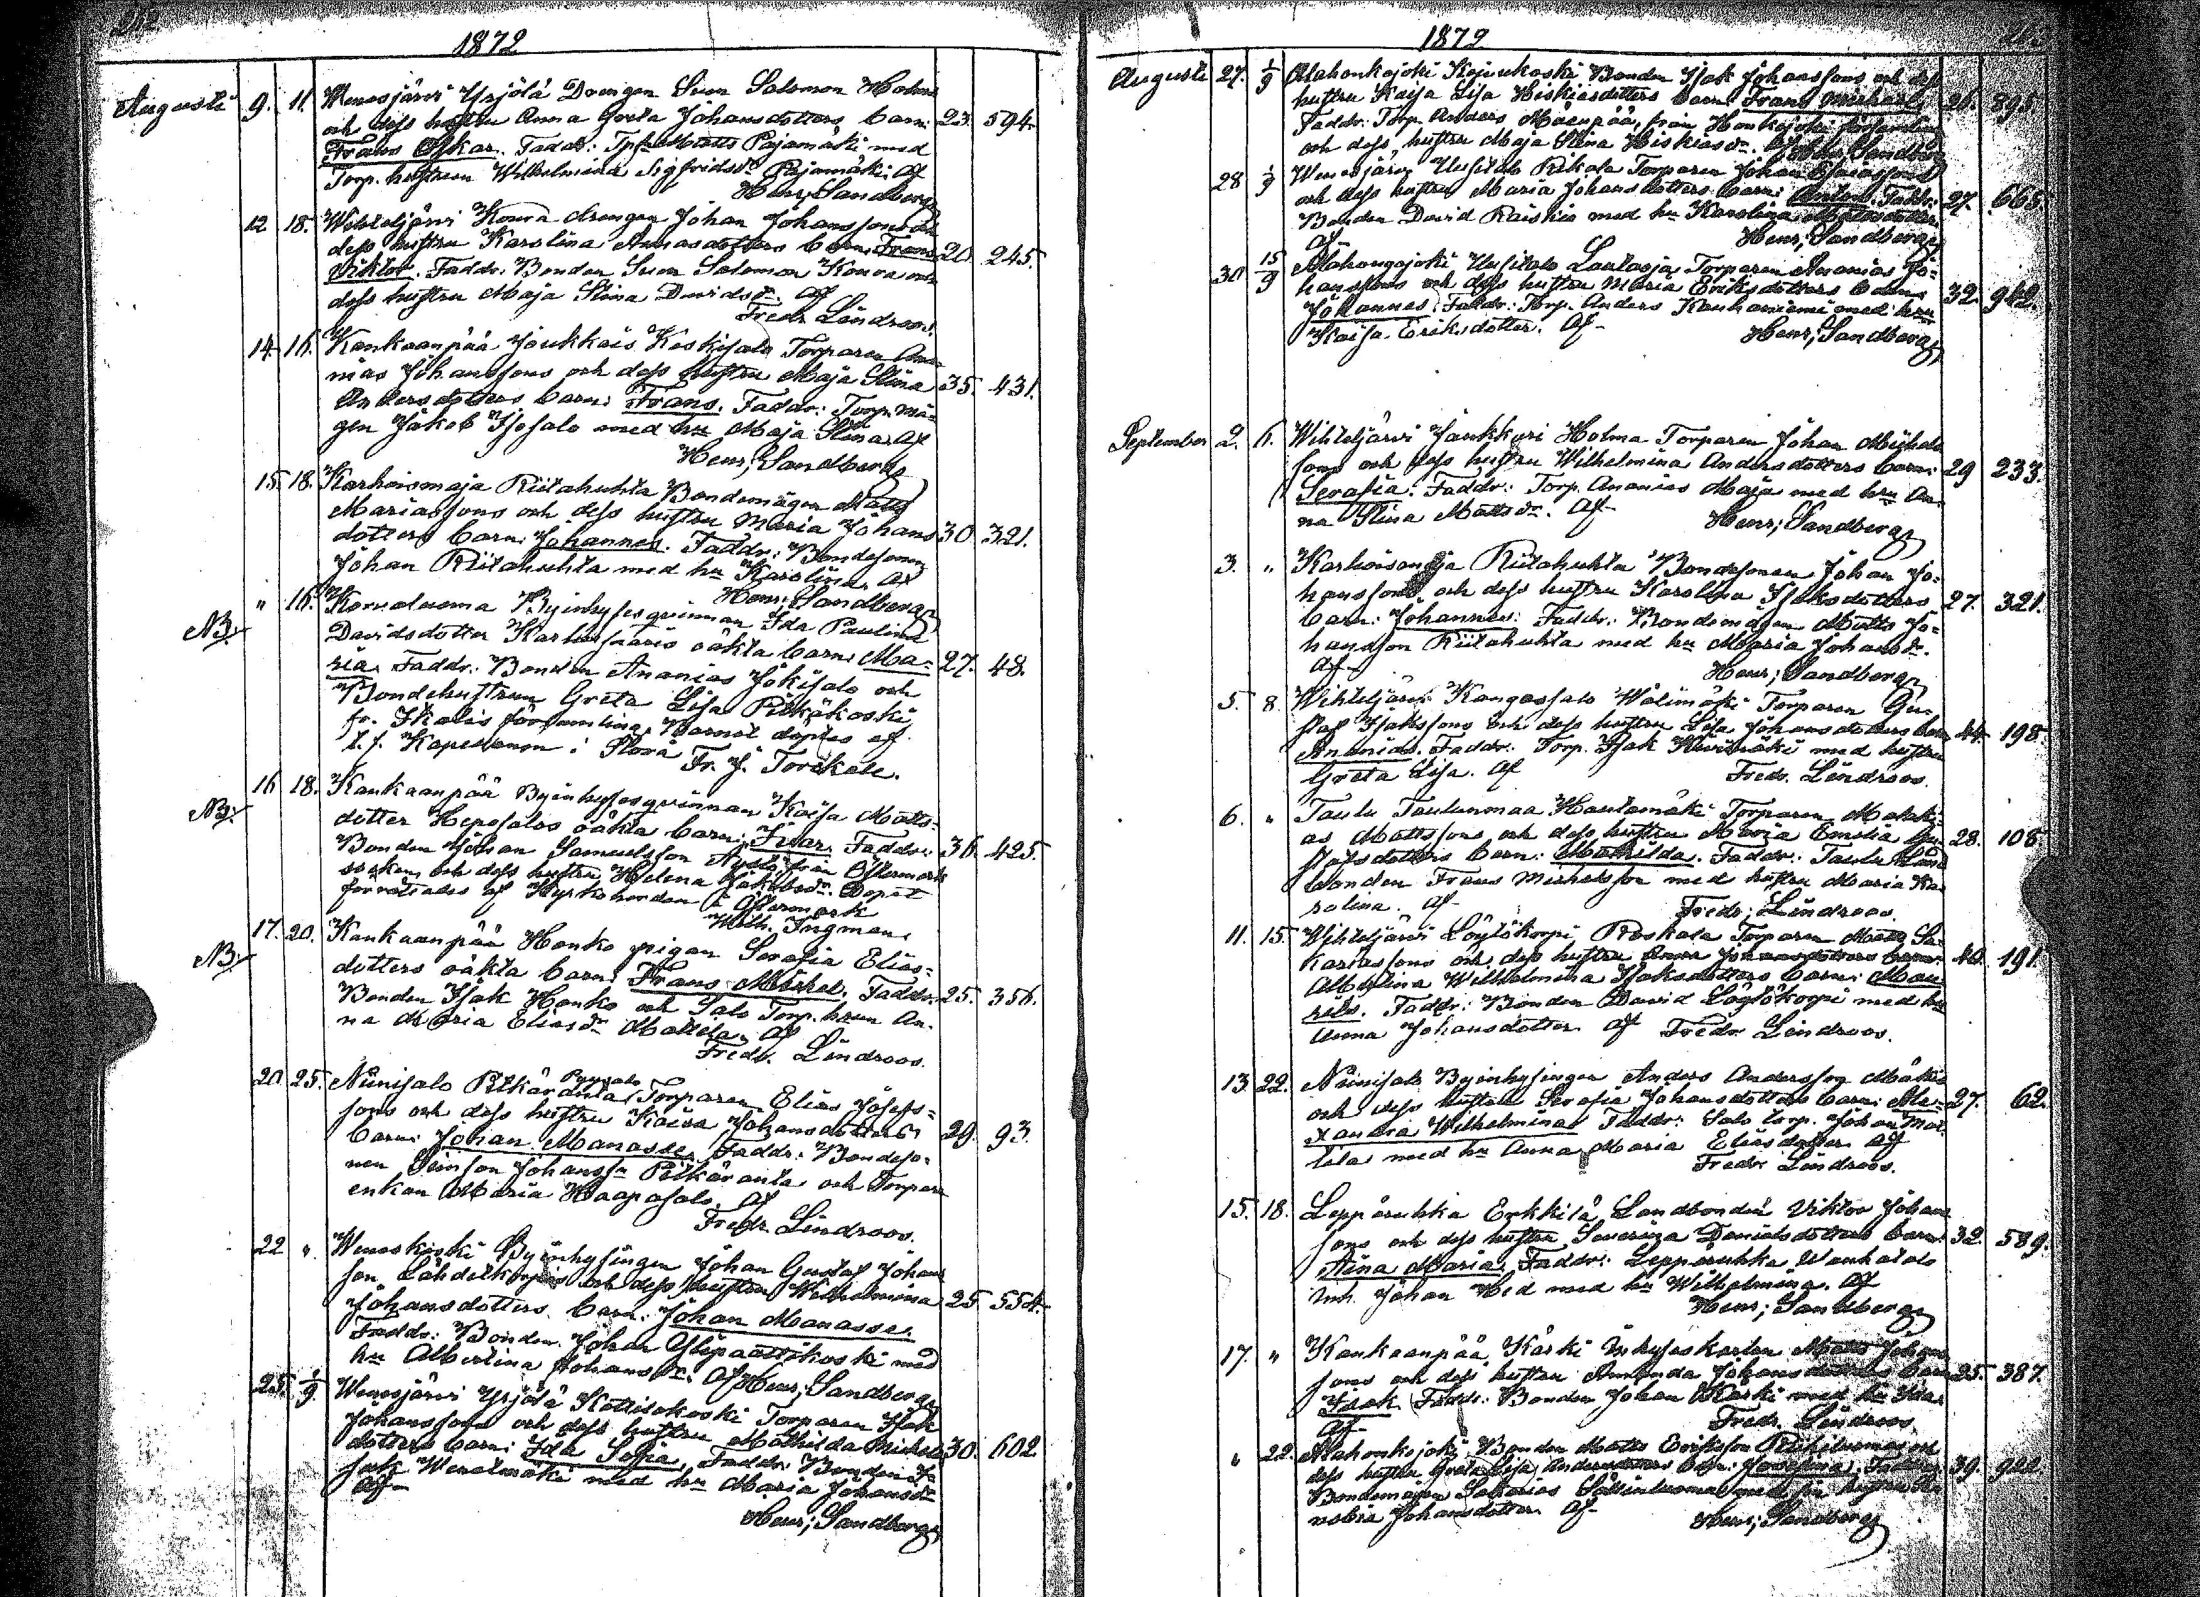 262
1872
Augusti 9. 11. Wenesjärvi Yrjölä Drengen Sven Salomon Holms
och dess hustru Anna Greta Johansdotters barn: 23. 594.
Frans Oskar. Faddr: Matts Pajamäki med
Torp. hustrun Wilhelmina Sigfridsdr Pajamäki. Af
Henr; Sandberg
12 18. Wihteljärvi Koura drengen Johan Johanssons och
dess hustru Karolina Annasdotters barn: Frans 20. 245.
Viktor. Faddr. Bonden Sven Salomon Koura och
dess hustru Maja Stina Davidsdr. Af
Fredr Lindroos.
14. 16. Kankaanpää Joukkais Koskisalo Torparen Ana-
nias Johanssons och dess hustru Maja Stina 35. 431.
Andersdotters barn: Frans. Faddr: Torp. må-
gen Jakob Isosalo med hu Maja Stina. Af
Henr; Sandberg
15. 18. Karhoismaja Riitahuhta Bondemågen Matts
Mariassons och dess hustru Maria Johans 30. 321.
dotters barn: Johannes. Faddr: Bondesonen
Johan Riitahuhta med hu Karolina. Af
Henr; Sandberg
NB. " 16. Korvaluoma Byinhysesqvinnan Ida Paulina
Davidsdotter Karhusaaris oäkta barn: Ma- 27. 48.
ria. Faddr. Bonden Ananias Jokisalo och
Bondehustrun Greta Lisa Pitkäkoski
fr. Ikalis församling. Barnet döptes af
t. f. Kapellanen i
Fr. J. Torckell.
NB. 16 18. Kankaanpää Byinhysesqvinnan Kaisa Matts-
dotter Heposalos oäkta barn: Ivar. Faddr: 36. 425.
Bonden Johan Samuelsson från Östermark
socken och dess hustru Helena Jakobsdr. Dopet
förrättades af Kyrkoherden i Östermark
Wilh. Ingman.
NB. 17. 20. Kankaanpää Honko pigan Serafia Elias-
dotters oäkta barn: Frans Mikael. Faddr. 25. 356.
Bonden Isak Honko och Salo Torp. hrun An-
na Maria Eliasdr Mattila. Af
Fredr. Lindroos.
20. 25. Niinisalo Pitkäranta Torparen Elias Josefs-
sons och dess hustru Kaisa Johansdotters 29. 93.
barn: Johan Manasse. Faddr: Bondeso-
nen Johanss Pitkäranta och Torpare
enkan Maria Haapasalo. Af
Fredr Lindroos.
22 " Weneskoski Byinhysingen Johan Gustaf Johans
son och dess hustru Wilhelmina 25 554.
Johansdotters barn: Johan Manasse.
Faddr: Bonden Johan Ylipaattikoski med
hu Albertina Johansdr. Af Henr; Sandberg
25. 1/9. Wenesjärvi Yrjölä Kottilakoski Torparen Isak
Johanssons och dess hustru Mathilda Mickels 30. 602.
dotters barn: Ida Sofia. Faddr. Bonden I-
sak med hu Maria Johansdr
Af
Henr; Sandberg
1872
Augusti 27. 1/9 Alahonkajoki Kojuukoski Bonden Isak Johanssons och dess
hustru Kaisa Lisa Hiskiasdotters barn: Frans Michael. 26. 895.
Faddr: Torp. Anders Mäenpää från Honkajoki församling
och dess hustru Maja Stina Hiskiasdr. Af Henr; Sandberg
28 1/9 Wenesjärvi Uusitalo Rikala Torparen Johan
och dess hustru Maria Johansdotters barn: Anton. Faddr: 27. 665.
Bonden David Raiskio med hu Karolina Mattsdotter.
Af Henr; Sandberg
30 15/9 Alahongajoki Uusitalo Torparen Ananias Jo-
hanssons och dess hustru Maria Eriksdotters barn: 32. 942.
Johannes. Faddr: Torp. Anders Kauhaniemi med hru
Kaisa Eriksdotter. Af Henr; Sandberg
September 2. 6. Wihteljärvi Jankkari Holma Torparen Johan Michels
sons och dess hustru Wilhelmina Andersdotters barn: 29 233.
Serafia. Faddr: Torp. Ananias Maja med hru An-
na Stina Mattsdr. Af Henr; Sandberg
3. " Karhoismaja Riitahuhta Bondesonen Johan Jo-
hanssons och dess hustru Karolina Isaksdotters 27. 321.
barn: Johannes. Faddr: Bondemågen Matts Jo-
hansson Riitahuhta med hu Maria Johansdr.
Af Henr; Sandberg
5. 8. Wihteljärvi Kangassalo Wälimäki Torparen Gu-
staf Isakssons och dess hustru Lisa Johansdotters barn 44. 198.
Ananias. Faddr. Torp. Isak Kuusimäki med hustru
Greta Lisa. Af Fredr. Lindroos.
6. " Taulu Taulunmaa Hautamäki Torparen Malaki-
as Mattssons och dess hustru Maria Emelia Gu- 28. 108.
stafsdotters barn: Mathilda. Faddr: Taulu Land
bonden Frans Michelsson med hustru Maria Ka-
rolina. Af Fredr; Lindroos.
11. 15. Wihteljärvi Löytökorpi Roskala Torparen Matts Sa-
kariassons och dess hustru Anna Johansdotters barn: 40. 191.
Albertina Wilhelmina Isaksdotters barn: Mau-
rits. Faddr: Bonden David Löytökorpi med hu
Anna Johansdotter. Af Fredr Lindroos.
13 22. Niinisalo Byinhysingen Anders Andersson Mäkis
och dess hustru Serafia Johansdotters barn: Ale- 27. 62.
xandra Wilhelmina. Faddr: Salo torp. Johan Mat-
tila med hu Anna Maria Eliasdotter. Af
Fredr Lindroos.
15. 18. Leppäruhka Erkkilä Landbonden Viktor Johans
sons och dess hustru Severina Danielsdotters barn: 32. 589.
Aina Maria. Faddr: Leppäruhka Wanhatalo
Inh. Johan Hed med hu Wilhelmina. Af
Henr; Sandberg
17. " Kankaanpää Kärki Inhyseskarlen Matts Johans
sons och dess hustru Amanda Johansdotters barn 25. 387.
Isak. Faddr: Bonden Johan Kärki med hu Ida.
Af Fredr. Lindroos.
" 22. Alahonkojoki Bonden Matts Eriksson och
dess hustru Greta Lisa Andersdotters barn: Josefina. Faddr: 39. 922.
Bondemågen Sakarias med sin hustru Se-
nobia Johansdotter. Af Henr; Sandberg